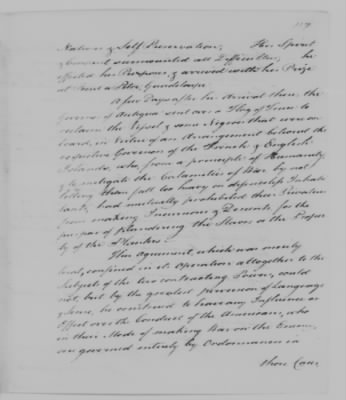 119
Nations & Self Preservation; His Spirit
& Conduct surmounted all Difficulties, he
effected his Purpose, & arrived with his Prize
at Point a Petre, Guadeloupe.
A few Days after his Arrival there, the
Governor of Antigua sent over a Flag of Truce to
reclaim the Vessel & some Negroes that were on
board, in Virtue of an Arrangement between the
respective Governors of the French & English
Islands, who, from a principle of Humanity,
& to mitigate the Calamities of War by not
letting them fall too heavy on defenceless Inhabi-
tants, had mutually prohibited their Privateers
from making Incursions & Descents, for the
purpose of plundering the Slaves or the Proper
ty of the Planters.
This Agreement, which was merely
local, confined in its Operation altogether to the
Subjects of the two contracting Powers, could
not, but by the greatest perversion of Language
& Sense, be construed to have any Influence or
Effect over the Conduct of the Americans, who
in their Mode of making War on the Enemy,
are governed entirely by Ordonnances in